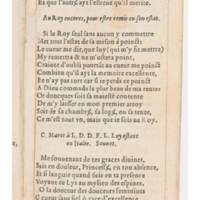 Et que l'autre ayt l'essence qu'il merite.
Au Roy encores, pour estre remis en son estat.
Si le Roy seul sans aucun y commettre
Met tout l'estat de sa maison à poinct:
Le cueur me dit, que luy (qui m'y fit mettre)
My remettra & ne m'ostera point,
Craincte d'oubli pourtant au cueur me poinct
Combien qu'il ayt la memoire excellente,
Et n'ay pas tort, car si je perds ce poinct
A Dieu commande le plus beau de ma rente
Or doncques soit sa maiesté contente
De m'y laisser en mon premier arroy
Soit de sa chambre, ou sa loge, ou sa tente,
Ce m'est tout un, mais que ie sois au Roy.
C. Marot à L. D. D. F. L. luy estant
en Italie. Sonnet.
Me souvenant de tes graces divines,
Suis en douleur, Princesse, en ton absence,
Et si languy quand suis en ta presence
Voyant ce Lys au mylieu des espines.
O la douceur des douceurs feminines
O cueur sans fiel